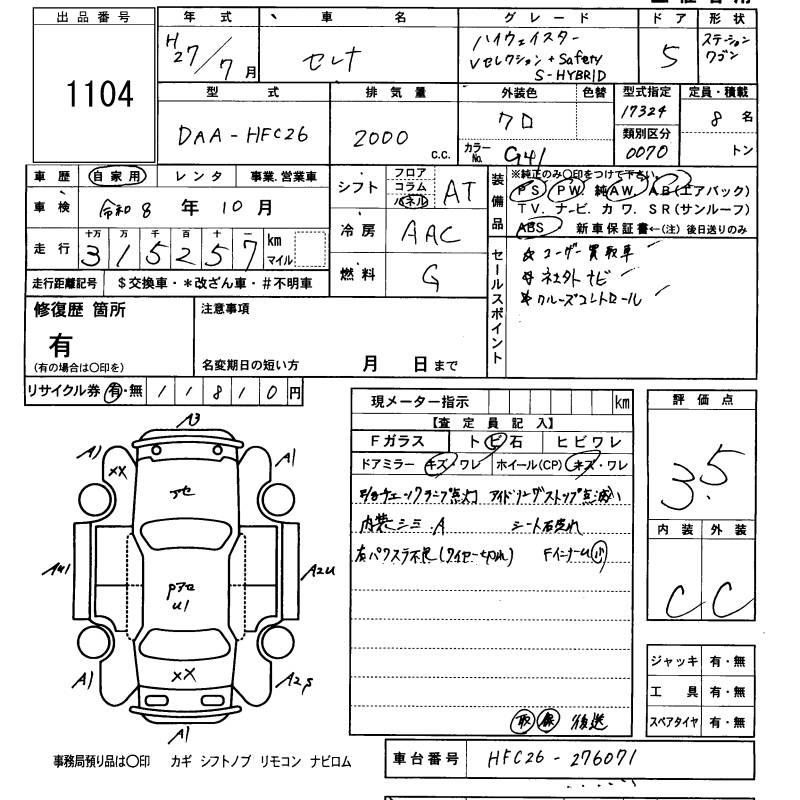 出品番号
1104
年式
H27/7月
車名
セレナ
グレード
ハイウェイスター
Vセレクション+Safety
S-HYBRID
ドア
5
形状
ステーション
ワゴン
型式
DAA-HFC26
排気量
2000 c.c.
外装色
クロ
色替
カラーNo.
G41
型式指定
17324
類別区分
0070
定員・積載
8名
トン
車歴 自家用 レンタ 事業.営業車
車検 令和8年10月
走行 十万 万 千 百 十
315257 km マイル
走行距離記号 $交換車・*改ざん車・#不明車
シフト フロア コラム パネル AT
冷房 AAC
燃料 G
装備品
※純正のみ○印をつけて下さい。
PS PW 純AW AB(エアバック)
TV. ナービ. カワ. SR(サンルーフ)
ABS 新車保証書←(注)後日送りのみ
セールスポイント
☆ユーザー買取車
ナビ
クルーズコントロール
修復歴 箇所
有
(有の場合は○印を)
注意事項
名変期日の短い方 月 日まで
リサイクル券 有・無 11810円
現メーター指示 km
【査定員記入】
Fガラス トビ石 ヒビワレ
ドアミラー キズ・ワレ ホイール(CP) キズ・ワレ
チェックランプ点灯 アイドリングストップ
内装シミ.A シート
右パワスラ不良(ワイヤー切れ) Fインナー 小
取 保 後送
評価点
3.5
内装 外装
C C
ジャッキ 有・無
工具 有・無
スペアタイヤ 有・無
A3
A1
XX
A1
アセ
A2U
PアセU1
A1
XX
A1
事務局預り品は○印 カギ シフトノブ リモコン ナビロム
車台番号 HFC26-276071